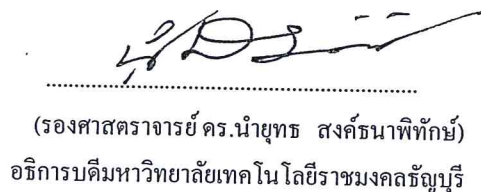 (รองศาสตราจารย์ ดร.นำยุทธ สงค์ธนาพิทักษ์)
อธิการบดีมหาวิทยาลัยเทคโนโลยีราชมงคลธัญบุรี